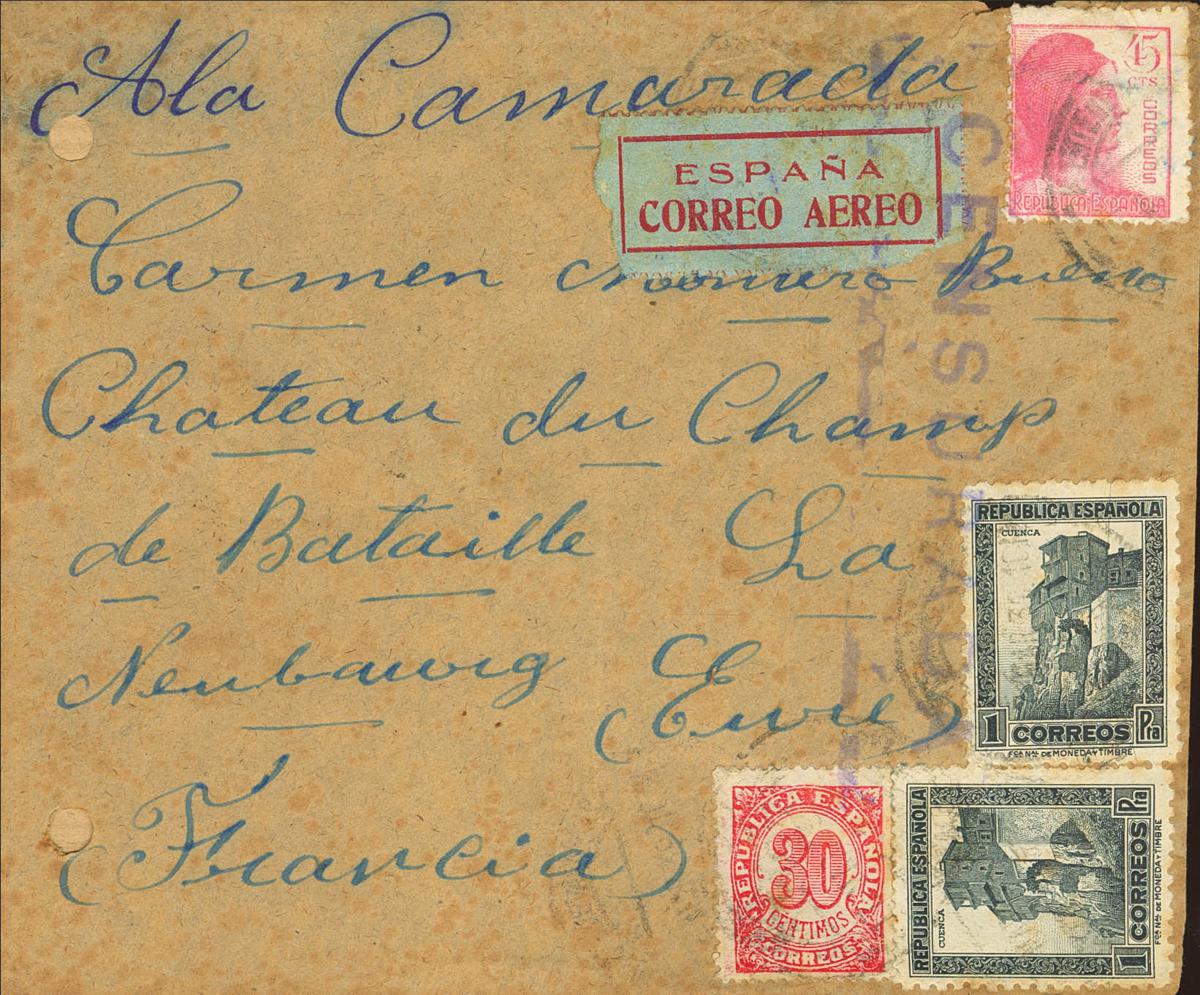 A la Camarada
ESPAÑA
CORREO AEREO
45
CTS
CORREOS
REPUBLICA ESPAÑOLA
CENSURA
Carmen Romero Bueno
Chateau du Champ
de Bataille La
Neubawrg (Eure)
(Francia)
REPUBLICA ESPAÑOLA
CUENCA
1 CORREOS Pta
FCA. NAL. DE MONEDA Y TIMBRE
REPUBLICA ESPAÑOLA
30
CENTIMOS
CORREOS
REPUBLICA ESPAÑOLA
CUENCA
1 CORREOS Pta
FCA. NAL. DE MONEDA Y TIMBRE